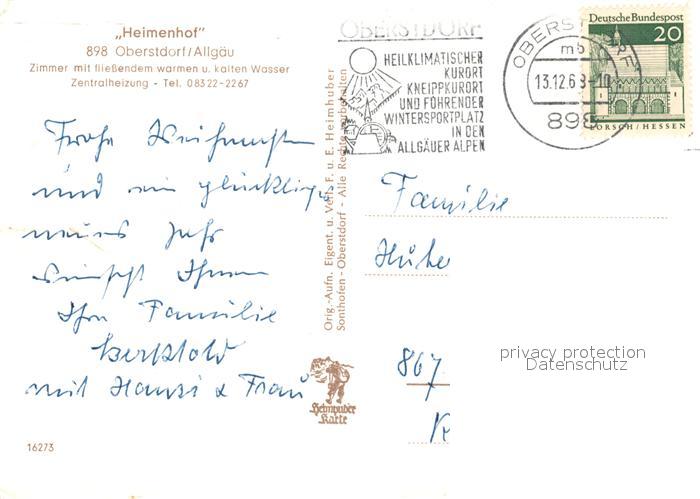 „Heimenhof"
898 Oberstdorf/Allgäu
Zimmer mit fließendem warmen u. kalten Wasser
Zentralheizung - Tel. 08322-2267
Frohe Weihnachten
und ein glückliches
neues Jahr
wünscht Ihnen
Ihre Familie
Berktold
mit Hansi & Frau
16273
Orig.-Aufn. Eigent. u. Verl. F. u. E. Heimhuber
Sonthofen - Oberstdorf - Alle Rechte vorbehalten
Heimhuber
Karte
OBERSTDORF
HEILKLIMATISCHER
KURORT
KNEIPPKURORT
UND FÜHRENDER
WINTERSPORTPLATZ
IN DEN
ALLGÄUER ALPEN
OBERSTDORF
mb
13.12.68-10
898
Deutsche Bundespost
20
LORSCH/HESSEN
Familie
Hüte
867
privacy protection
Datenschutz